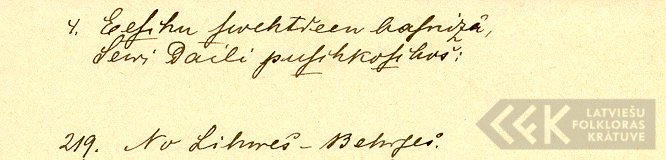 4. Eeſihu ſwehtdeen baſnizâ,
Sewi Daili puſchkoſihos:
219. No Lihwes-Behrſes.
LATVIEŠU
FOLKLORAS
KRĀTUVE